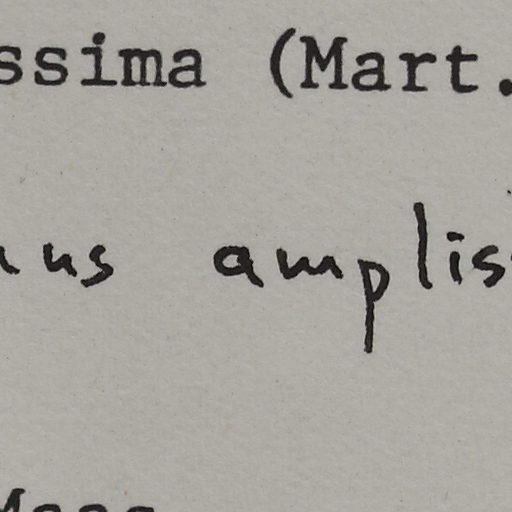 ssima (Mart.
nus amplis
Maas